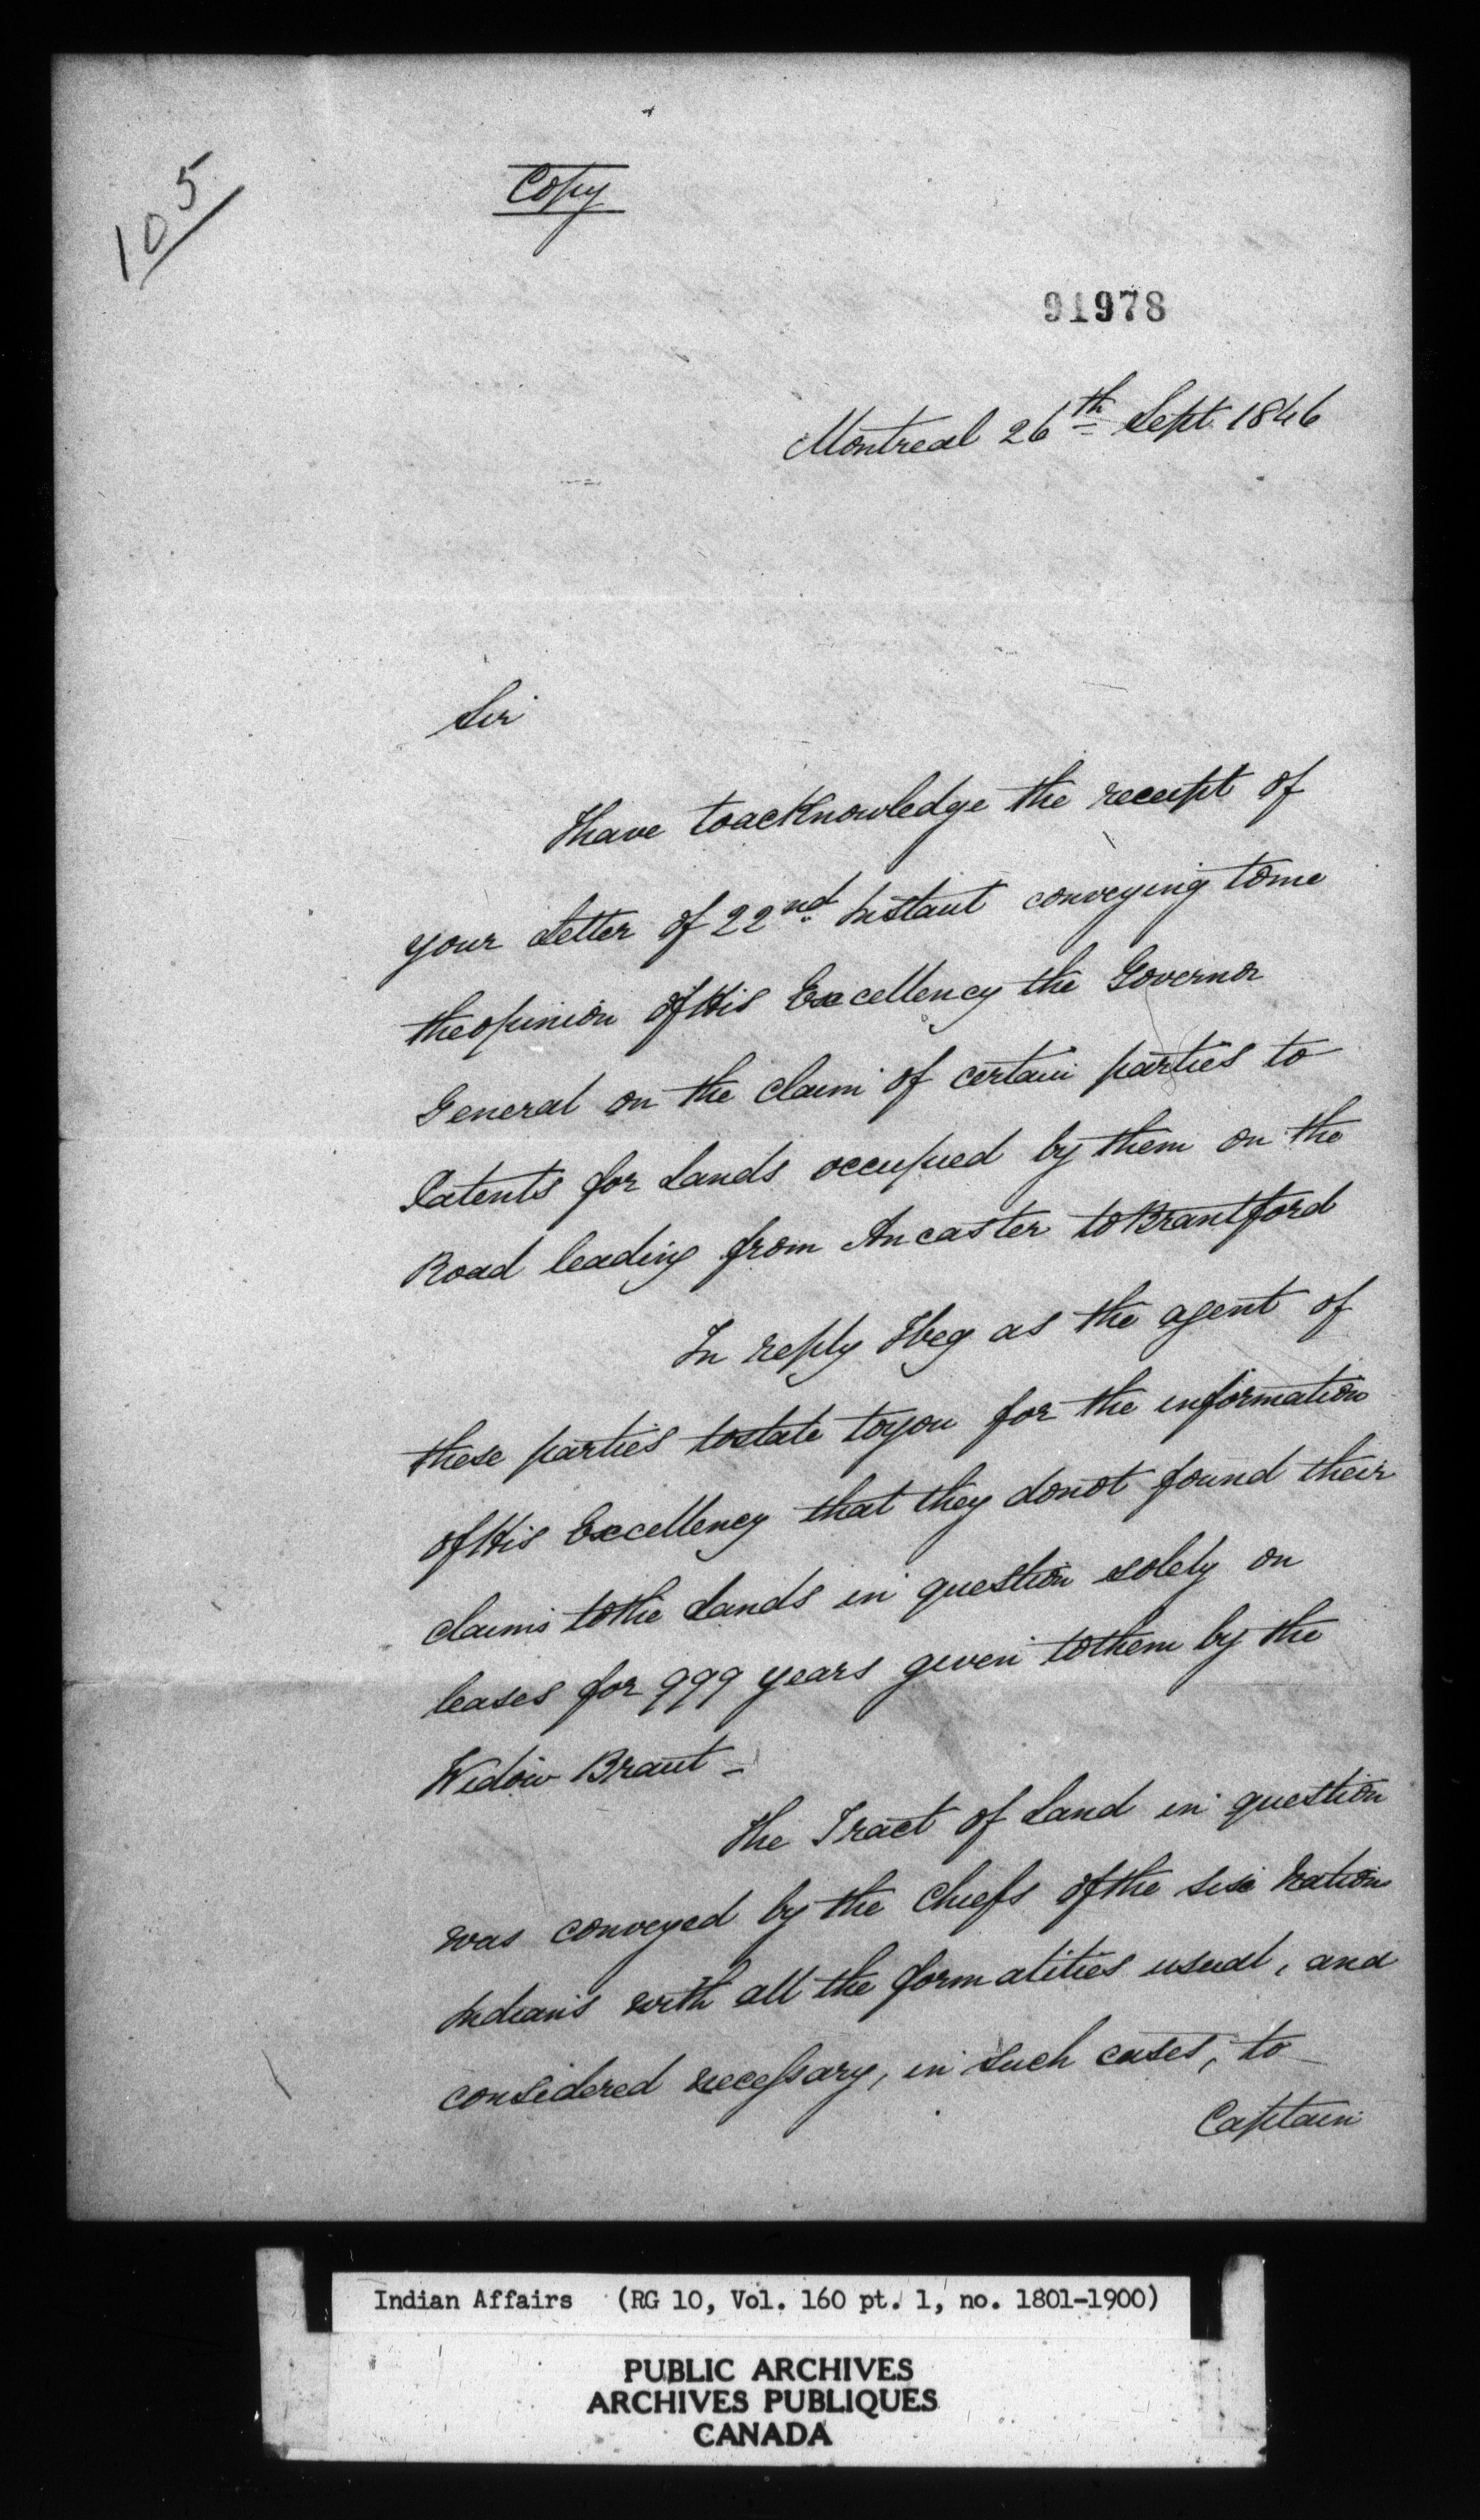 105
Copy
91978
Montreal 26th Sept. 1846
Sir
I have to acknowledge the receipt of
your Letter of 22nd Instant conveying to me
the opinion of His Excellency the Governor
General on the claim of certain parties to
Patents for Lands occupied by them on the
Road leading from Ancaster to Brantford
In reply I beg as the agent of
these parties to state to you for the information
of His Excellency that they do not found their
claims to the Lands in question solely on
leases for 999 years given to them by the
Widow Brant -
The Tract of Land in question
was conveyed by the Chiefs of the six Nations
Indians with all the formalities usual, and
considered necessary, in such cases, to
Captain
Indian Affairs (RG 10, Vol. 160 pt. 1, no. 1801-1900)
PUBLIC ARCHIVES
ARCHIVES PUBLIQUES
CANADA